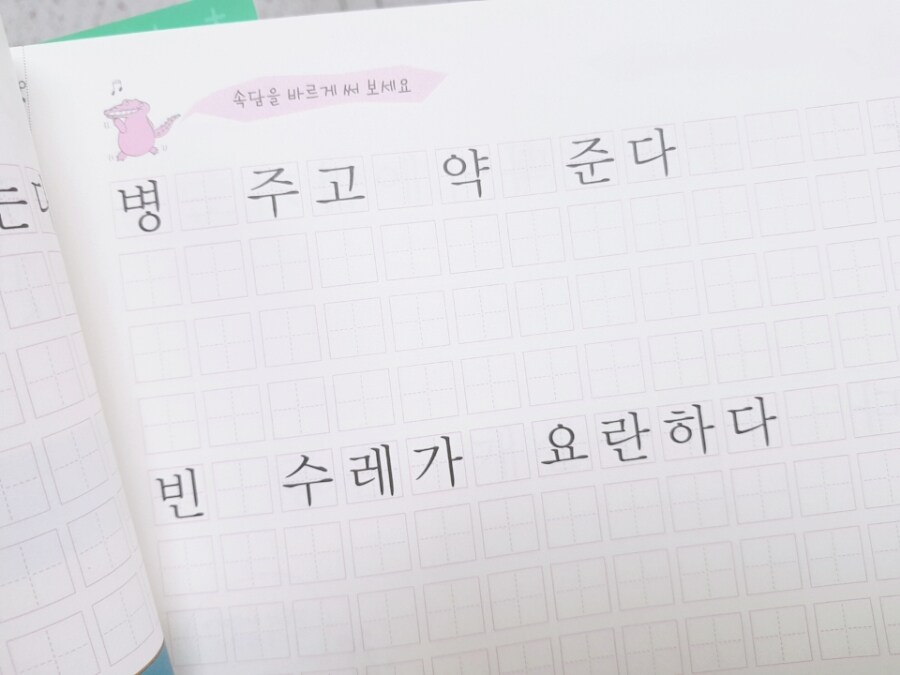 속담을 바르게 써 보세요
병 주고 약 준다
빈 수레가 요란하다